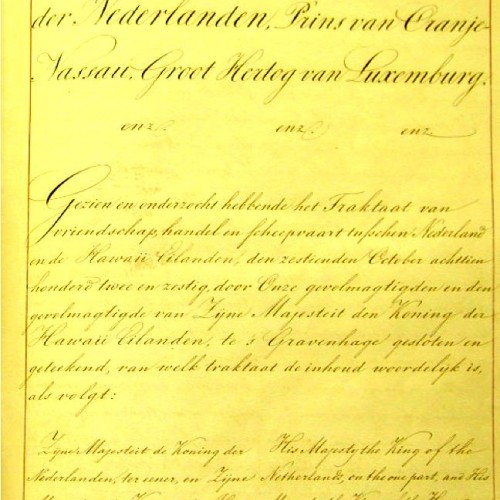 der Nederlanden, Prins van Oranje-
Nassau, Groot Hertog van Luxemburg.
enz. enz. enz
Gezien en onderzocht hebbende het Traktaat van
vriendschap, handel en scheepvaart tusschen Nederland
en de Hawaii Eilanden, den zestienden October achttien
honderd twee en zestig, door Onze gevolmagtigden en den
gevolmagtigde van Zijne Majesteit den Koning der
Hawaii Eilanden, te 's Gravenhage gesloten en
geteekend, van welk traktaat de inhoud woordelijk is,
als volgt:
Zijne Majesteit de Koning der His Majesty the King of the
Nederlanden, ter eener, en Zijne Netherlands, on the one part, and His